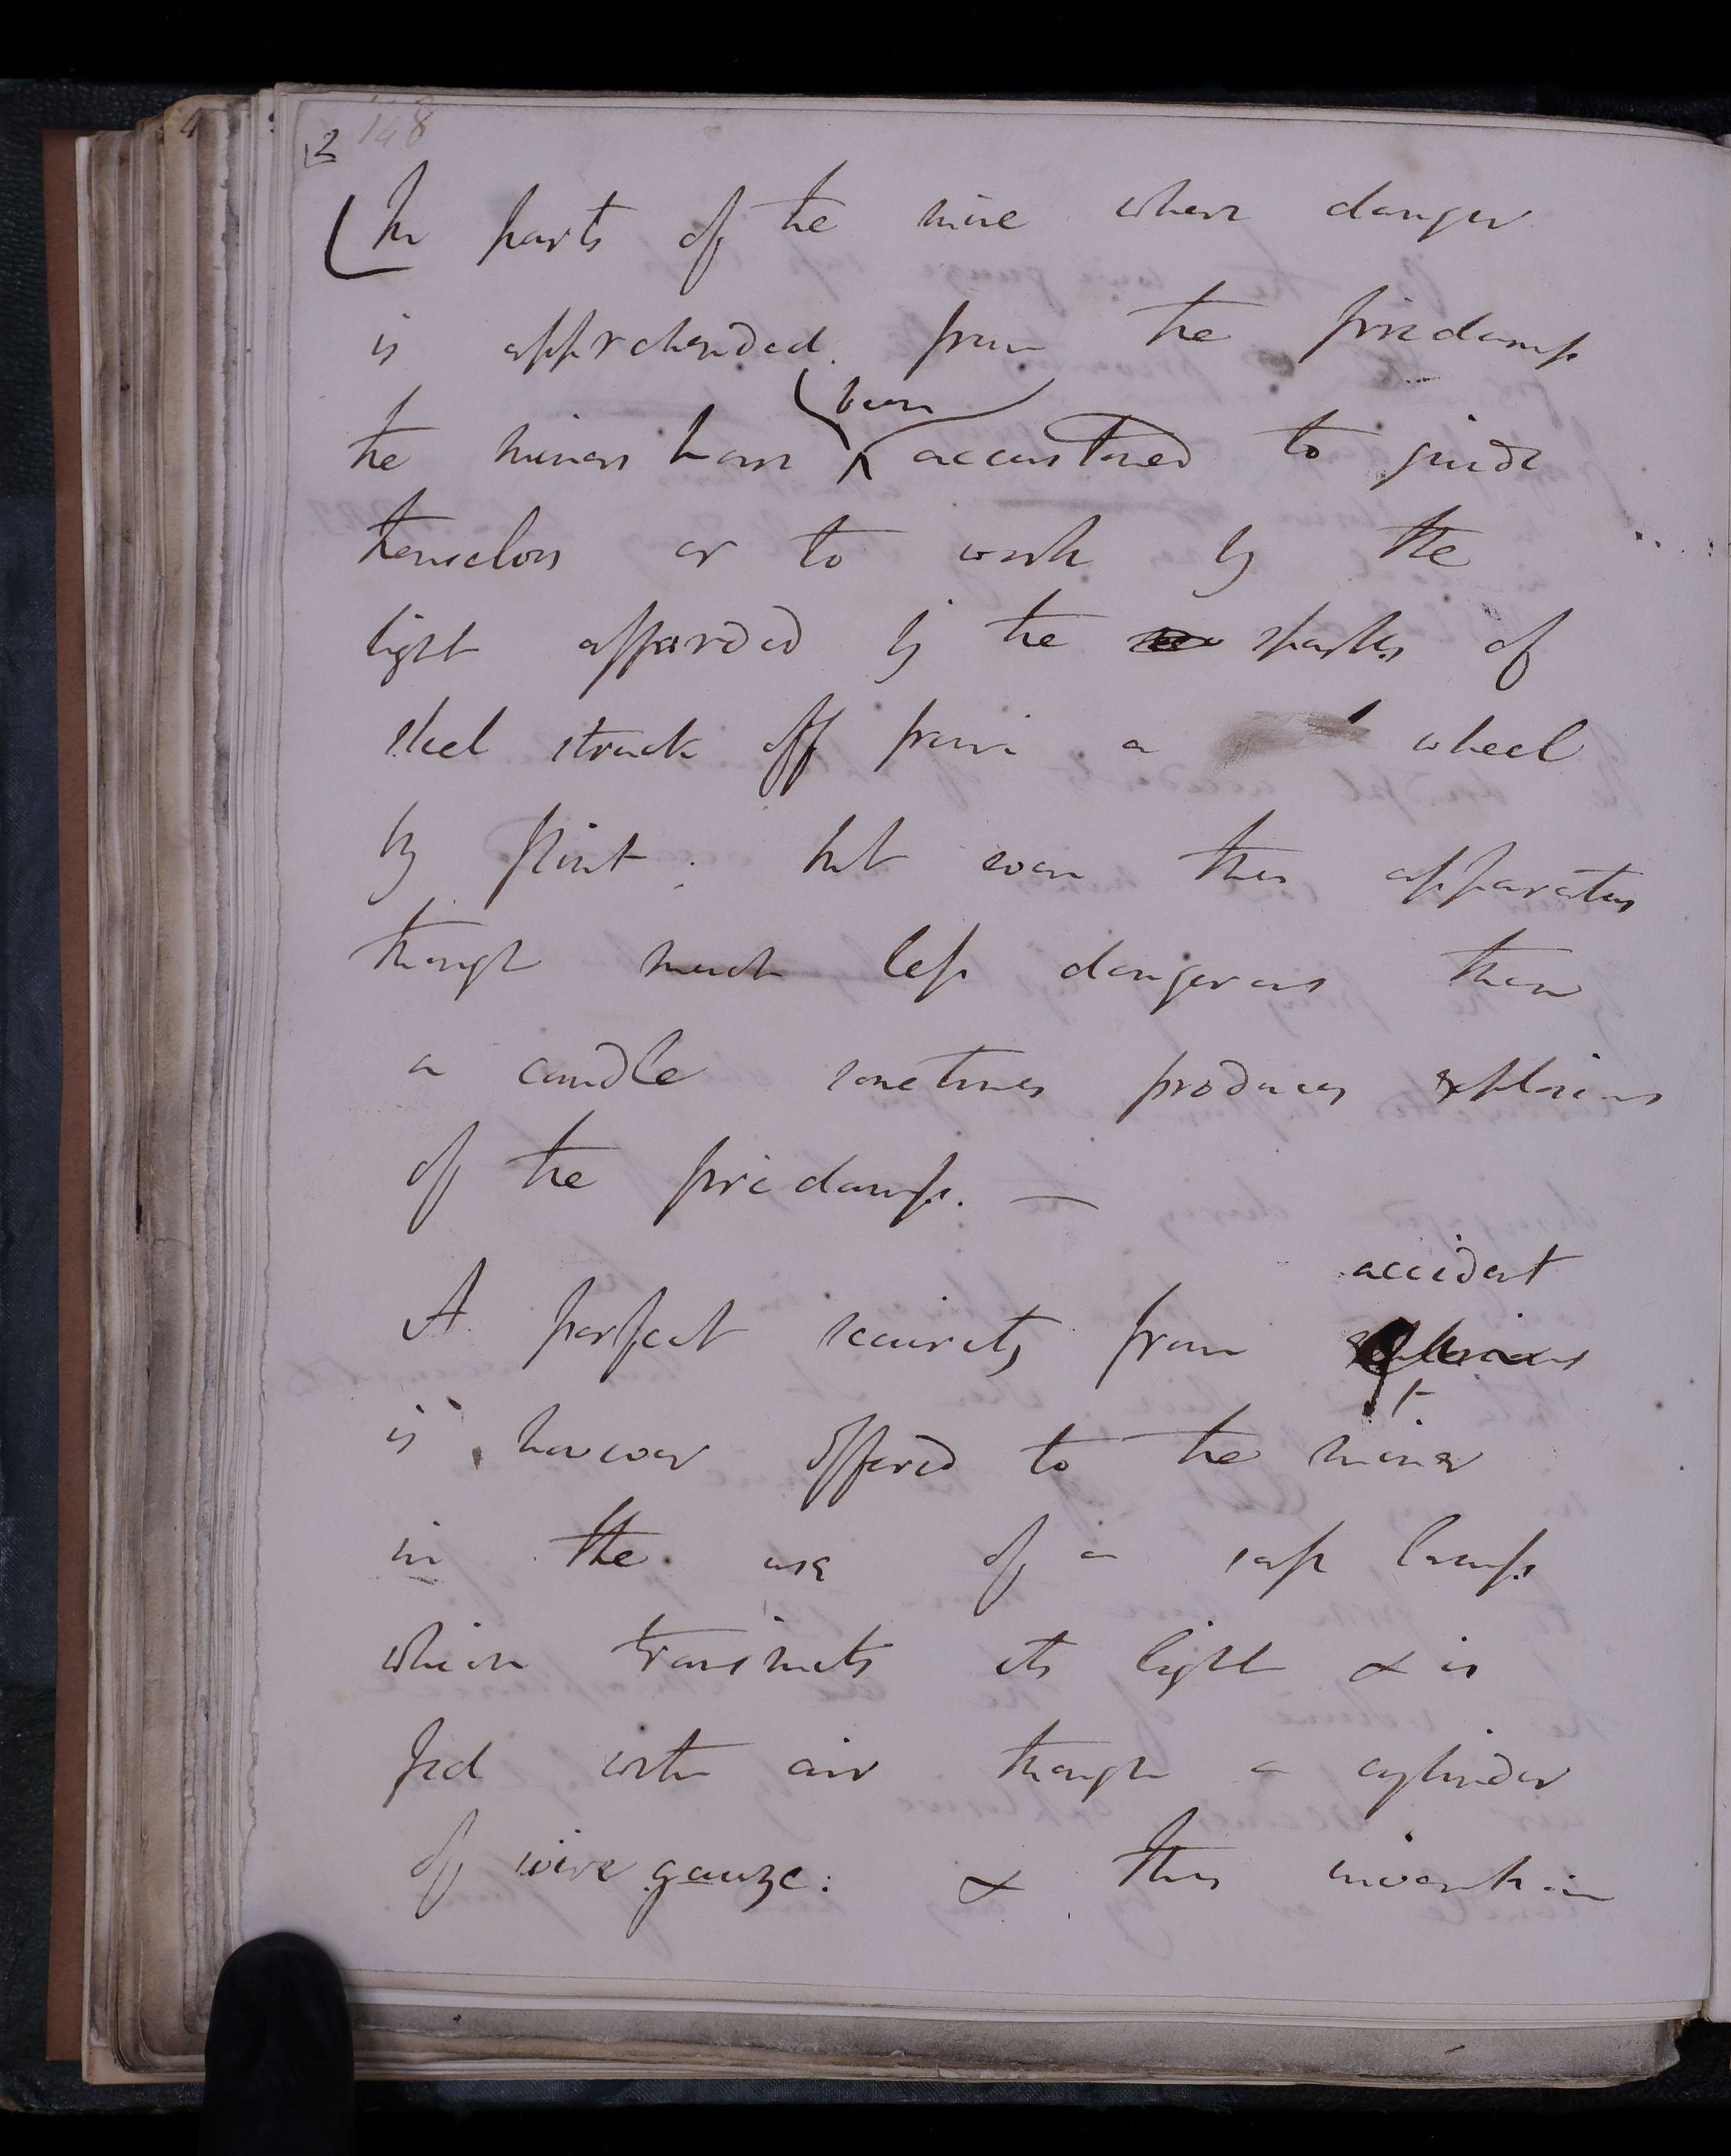 2 148
In parts of the mine where danger
is apprehended from the firedamp
been
the miners have accustomed to guide
themselves or to work by the
light afforded by the sparks of
steel struck off from a wheel
by flint: but even this apparatus
though much less dangerous than
a candle sometimes produces explosions
of the firedamp. —
accident
A perfect security from explosions
is however offered to the miner
in the use of a safe lamp
which transmits its light & is
fed with air through a cylinder
of wire gauze: & this invention